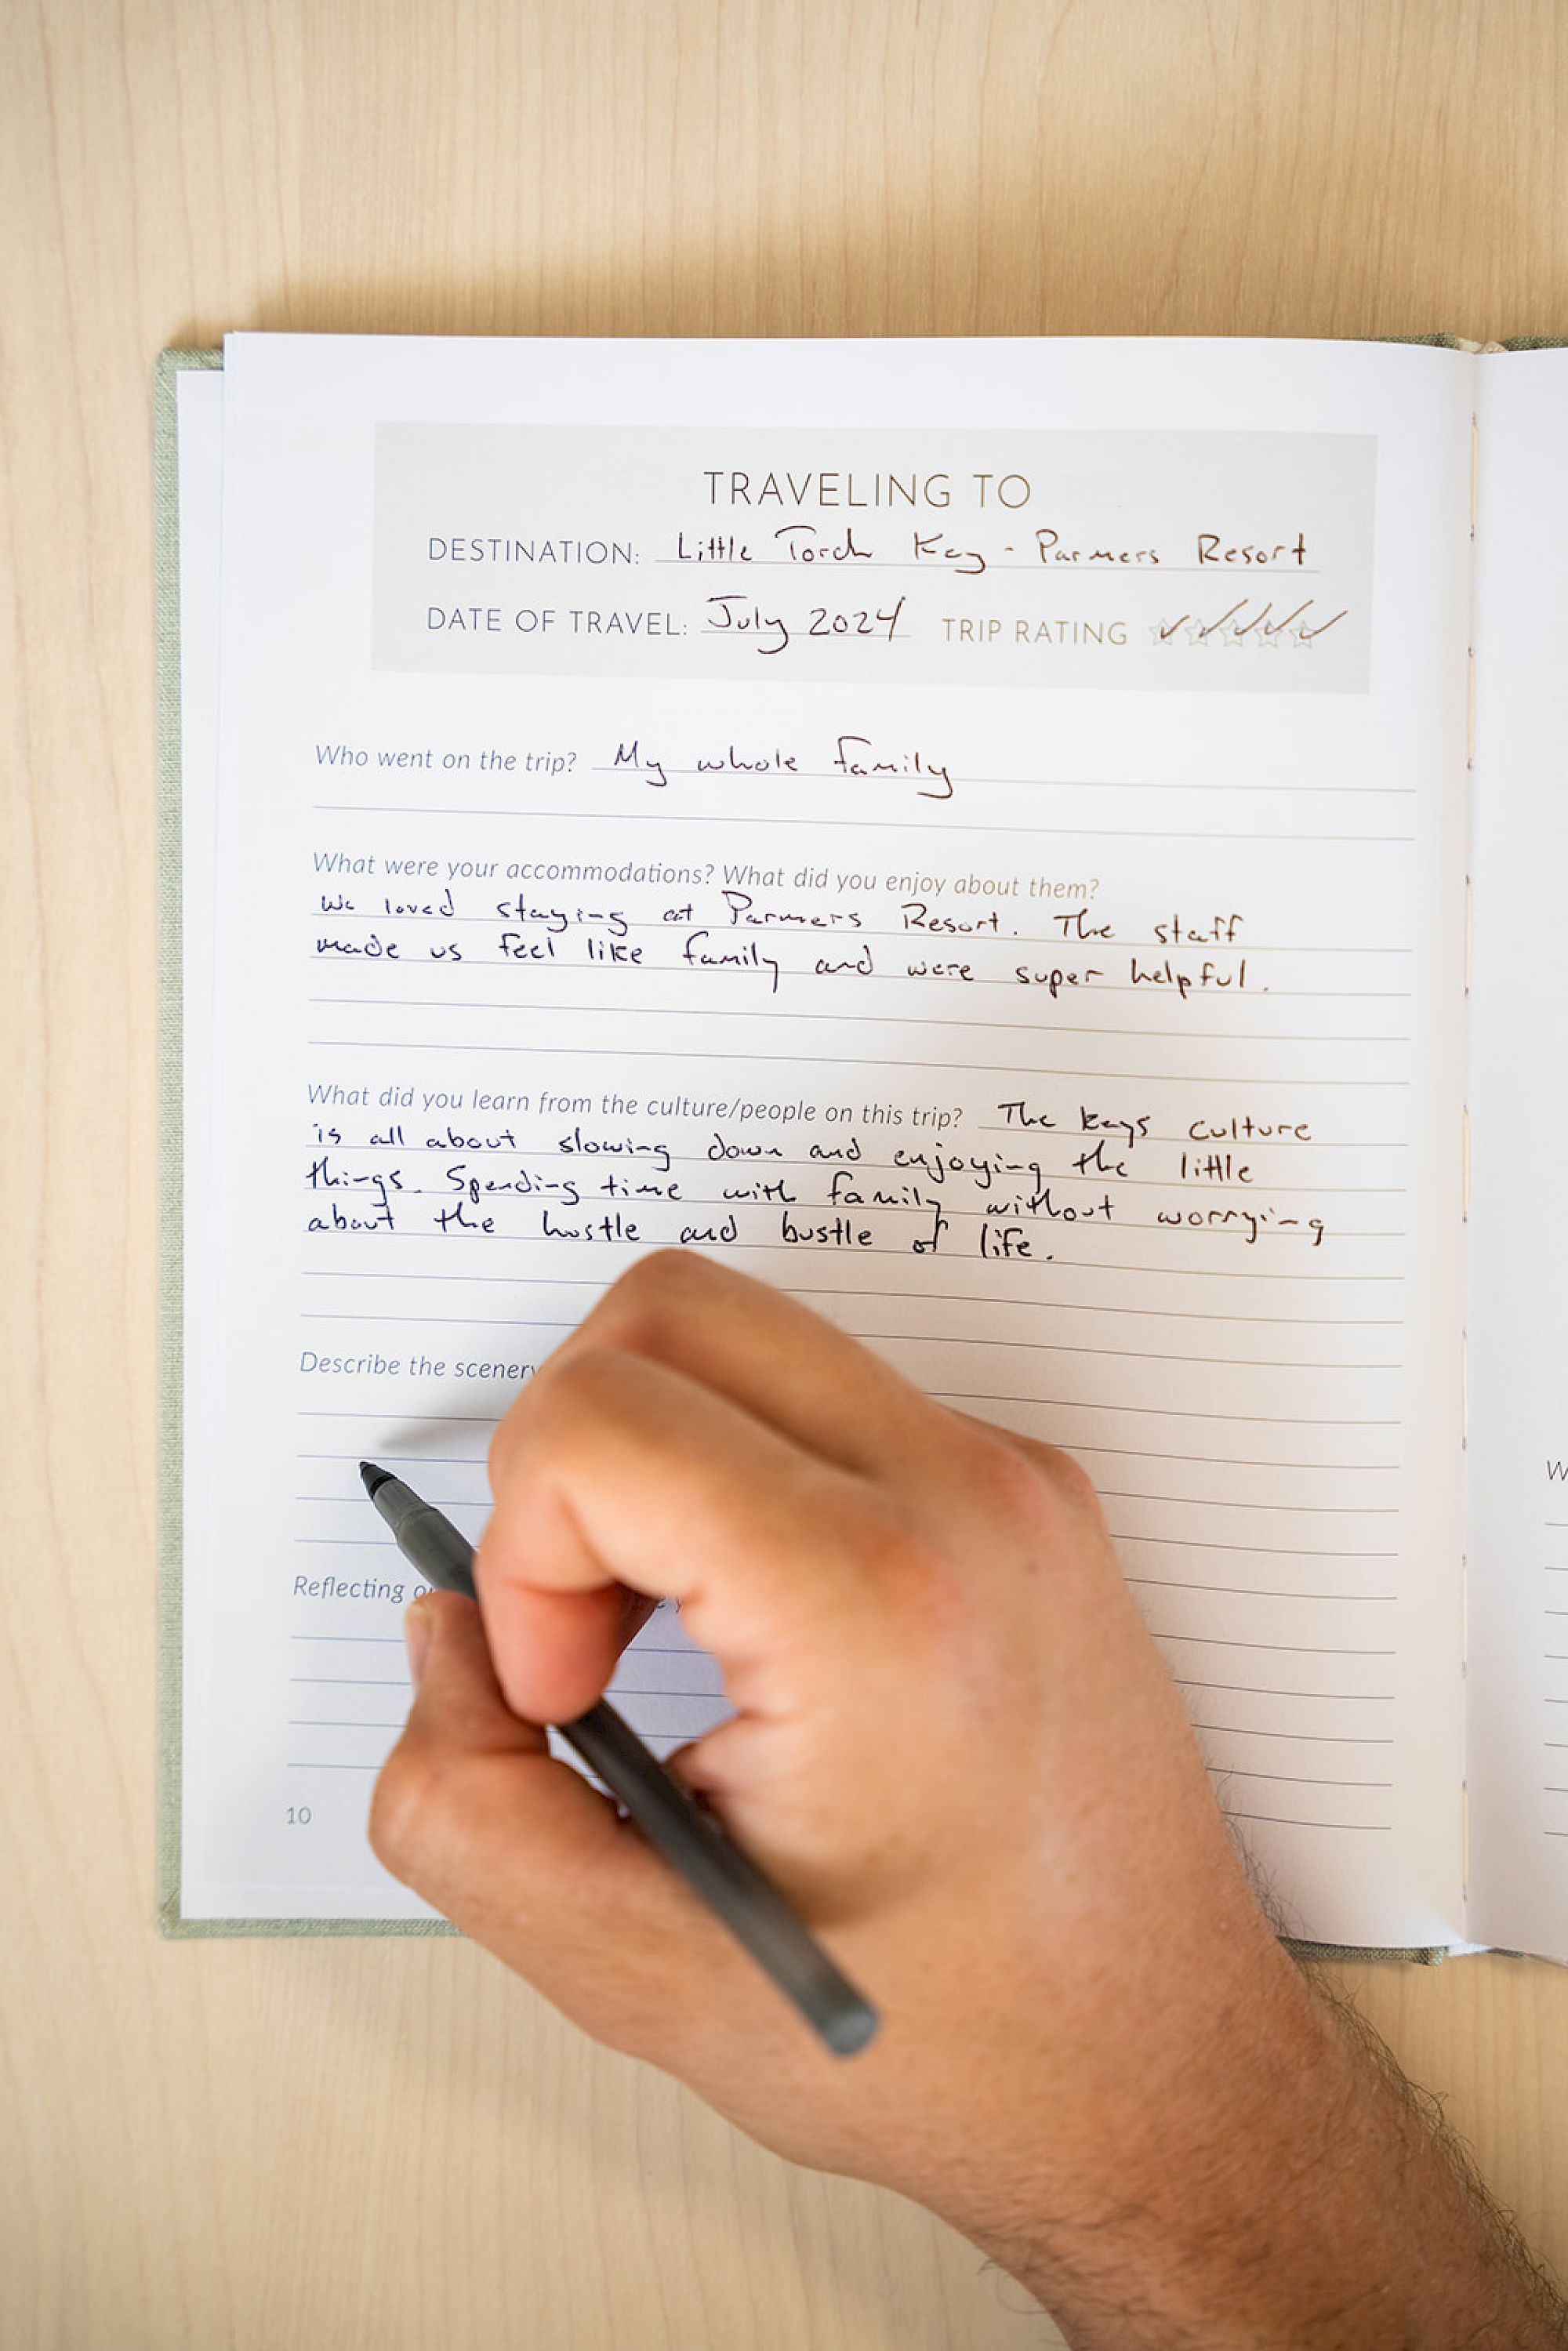 TRAVELING TO
DESTINATION: Little Torch Key - Parmers Resort
DATE OF TRAVEL: July 2024 TRIP RATING
Who went on the trip? My whole family
What were your accommodations? What did you enjoy about them?
We loved staying at Parmers Resort. The staff
made us feel like family and were super helpful.
What did you learn from the culture/people on this trip? The Keys culture
is all about slowing down and enjoying the little
things. Spending time with family without worrying
about the hustle and bustle of life.
Describe the scenery
Reflecting
10